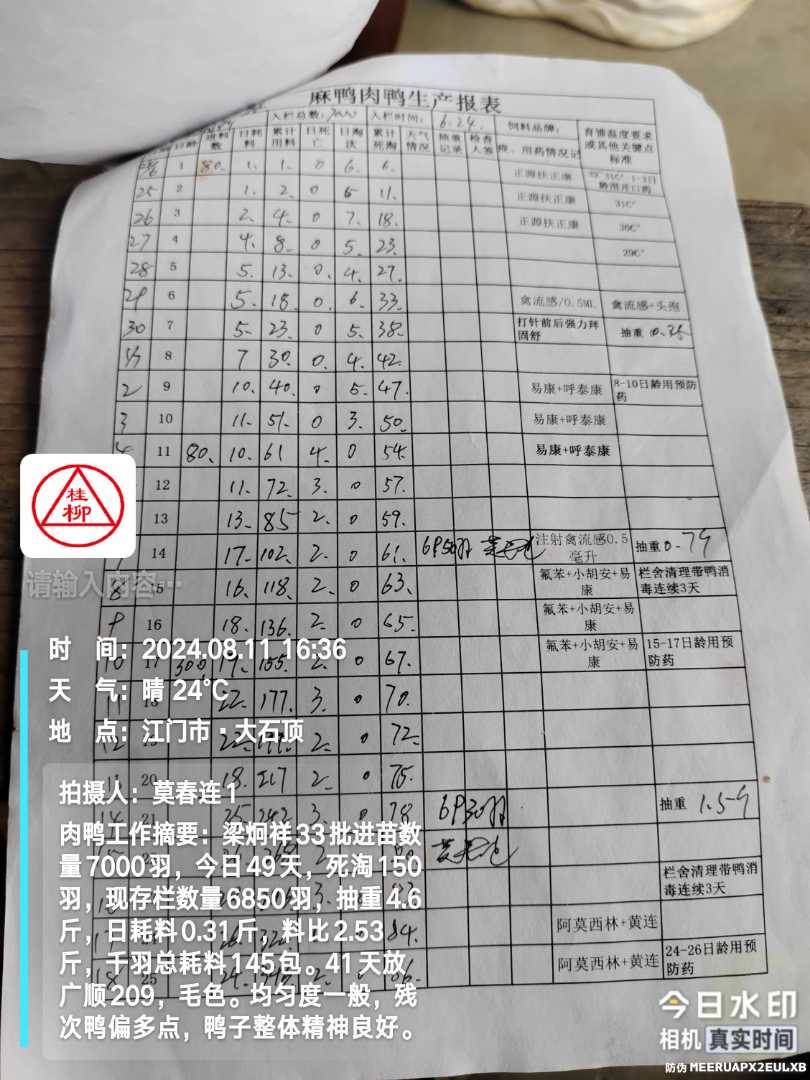 麻鸭肉鸭生产报表
入栏总数: 7000 入栏时间: 6.24. 饲料品牌: 育雏温度要求或其他关键点标准
日龄 料数 日耗料 累计用料 日死亡 日淘汰 累计死淘 天气情况 抽重记录 检查人签 疫、用药情况记
1 80. 1. 1. 0 6. 6. 正源扶正康 31C° 1-3日龄用开口药
25 2 1. 2. 0 5 11. 正源扶正康 31C°
26 3 2. 4. 0 7. 18. 正源扶正康 30C°
27 4 4. 8. 0 5. 23. 29C°
28 5 5. 13. 0. 4. 27.
29 6 5. 18. 0. 6. 33 禽流感/0.5ML 禽流感+头孢
30 7 5. 23. 0 5. 38. 打针前后强力拜固舒 抽重 0.35
8 7 30. 0. 4. 42.
2 9 10. 40. 0 5. 47. 易康+呼泰康 8-10日龄用预防药
3 10 11. 51. 0 3. 50. 易康+呼泰康
4 11 80. 10. 61 4. 0 54. 易康+呼泰康
12 11. 72. 3. 0 57.
13 13. 85 2. 0 59.
14 17. 102. 2. 0 61. 注射禽流感0.5毫升 抽重 0.75
8 15 16. 118. 2. 0 63. 氟苯+小胡安+易康 栏舍清理带鸭消毒连续3天
9 16 18. 136. 2. 0 65. 氟苯+小胡安+易康
10 17 300 155. 2. 0 67. 氟苯+小胡安+易康 15-17日龄用预防药
22. 177. 3. 0 70.
12 2. 0 72.
20 18. 217 2. 0 75.
14 21 25. 242 3. 0 78. 抽重 1.5
栏舍清理带鸭消毒连续3天
84. 阿莫西林+黄连
25 86. 阿莫西林+黄连 24-26日龄用预防药
桂柳
请输入内容…
时 间: 2024.08.11 16:36
天 气: 晴 24℃
地 点: 江门市·大石顶
拍摄人: 莫春连1
肉鸭工作摘要: 梁炯祥33批进苗数
量7000羽, 今日49天, 死淘150
羽, 现存栏数量6850羽, 抽重4.6
斤, 日耗料0.31斤, 料比2.53
斤, 千羽总耗料145包。41天放
广顺209, 毛色。均匀度一般, 残
次鸭偏多点, 鸭子整体精神良好。
今日水印
相机 真实时间
防伪 MEERUAPX2EULXB